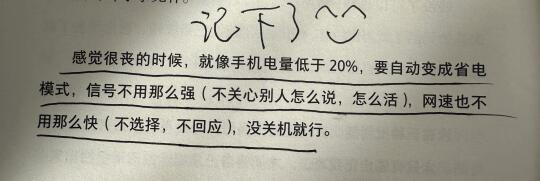 记下了
感觉很丧的时候，就像手机电量低于20%，要自动变成省电
模式，信号不用那么强（不关心别人怎么说，怎么活），网速也不
用那么快（不选择，不回应），没关机就行。